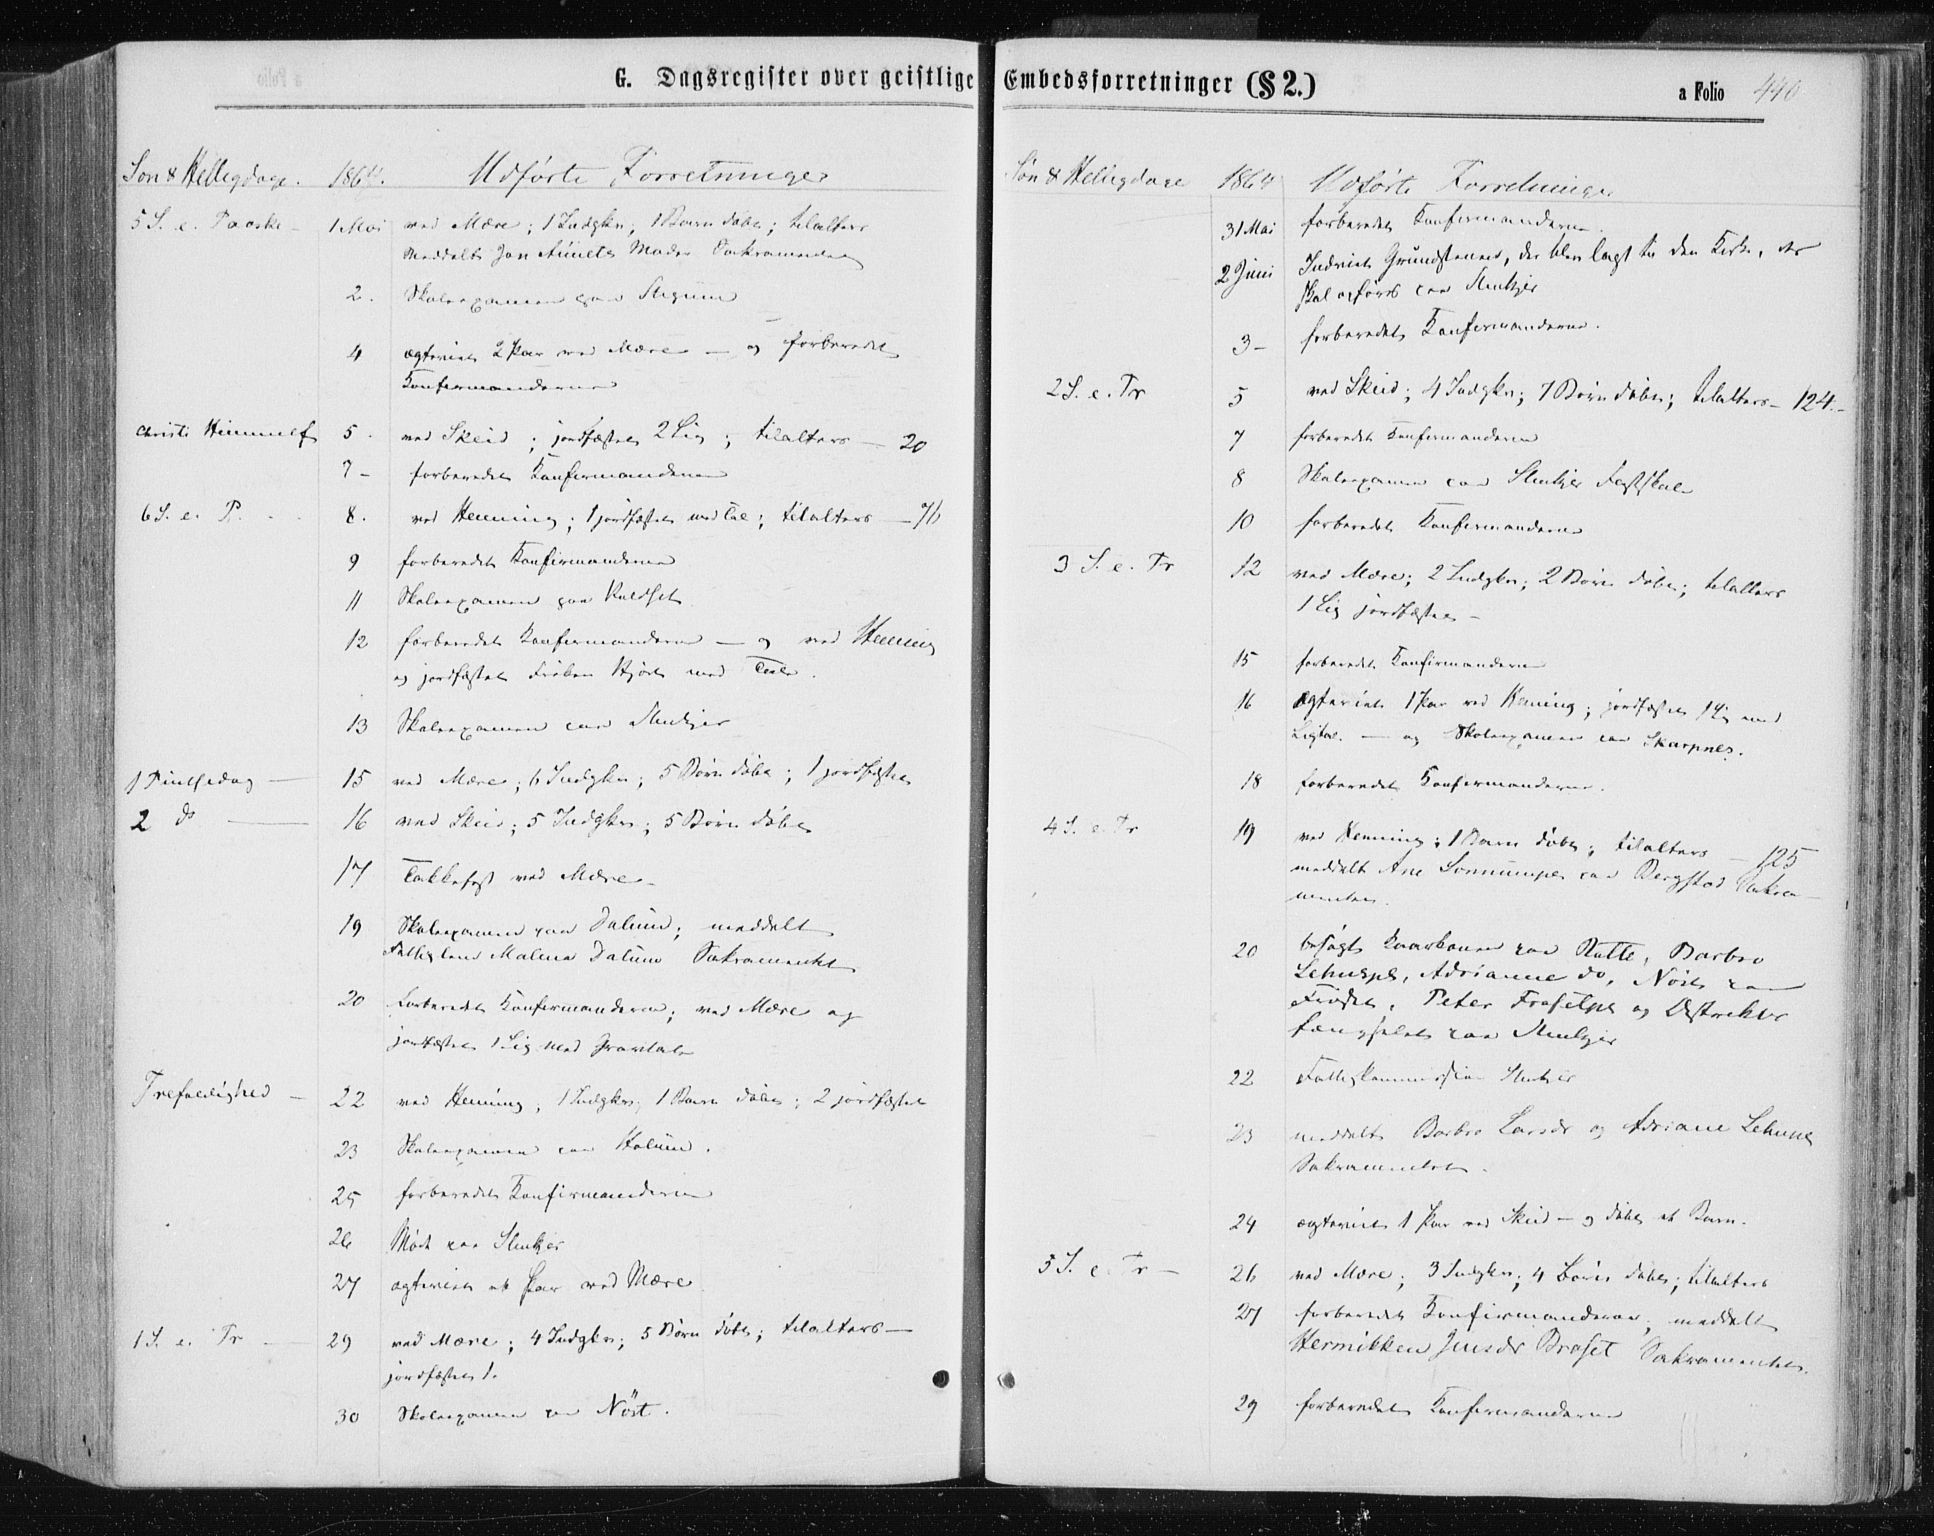 G. Dagsregister over geistlige Embedsforretninger (§ 2.)
a Folio 440
Søn & Helligdage. 1864. Udførte Forretninger
5 S. e. Paaske - 1 Mai ved Mære; 1 Indgkn; 1 Barn døbt; tilalters
Meddelt Jon Moder Sakramentet
2. Skoleexamen paa
4 ægteviet 2 Par ved Mære — og forberedet
Konfirmanderne
Christi Himmelf 5. ved Skeid; jordfæstet 2 Lig; tilalters — 20
7 - forberedet Konfirmanderne
6 S. e. P. - - 8. ved Henning; 1 jordfæstet med Tale; tilalters — 76
9 forberedet Konfirmanderne
11 Skoleexamen paa
12 forberedet Konfirmanderne — og ved Henning
og jordfæstet Frøken Hjort med Tale.
13 Skoleexamen paa Stenkjer
1 Pintsedag — 15 ved Mære; 6 Indgkn; 5 Børn døbt; 1 jordfæstet
2 do — 16 ved Skeid; 5 Indgkn; 5 Børn døbt
17 Takkefest ved Mære -
19 Skoleexamen paa Dalum; meddelt
Malena Dalum Sakramentet
20 forberedet Konfirmanderne; ved Mære og
jordfæstet 1 Lig med Gravtale
Trefoldighed — 22 ved Henning; 1 Indgkn; 1 Barn døbt; 2 jordfæstet
23 Skoleexamen paa Holum.
25 forberedet Konfirmanderne
26 Møde paa Stenkjer
27 ægteviet et Par ved Mære
1 S. e. Tr — 29 ved Mære; 4 Indgkn; 5 Børn døbt; tilalters —
jordfæstet 1.
30 Skoleexamen paa Nöst.
Søn & Helligdage 1864 Udførte Forretninger
31 Mai forberedet Konfirmanderne.
2 Juni Indviet Grundstenen, der blev lagt til den Kirke, der
skal opføres paa Stenkjer
3 - forberedet Konfirmanderne.
2 S. e. Tr 5 ved Skeid; 4 Indgkn; 7 Børn døbt; tilalters — 124 -
7 forberedet Konfirmanderne
8 Skoleexamen paa Stenkjer Fastskole
10 forberedet Konfirmanderne
3 S. e. Tr 12 ved Mære; 2 Indgkn; 2 Børn døbt; tilalters
1 Lig jordfæstet -
15 forberedet Konfirmanderne
16 ægteviet 1 Par ved Henning; jordfæstet 1 Lig med
Ligtale. — og Skoleexamen paa Skarpnes.
18 forberedet Konfirmanderne.
4 S. e. Tr 19 ved Henning; 1 Barn døbt; tilalters — 125
meddelt Ane paa Bergstad Sakra-
mentet.
20 besøgt paa Barbro
Adrianne do, Nöst paa
Peter og Distrikts
fængselet paa Stenkjer
22 Fattigkommission Stenkjer
23 meddelt Barbro Larsdr og Adriane
Sakramentet.
24 ægteviet 1 Par ved Skeid — og døbt et Barn.
5 S. e. Tr — 26 ved Mære; 3 Indgkn; 4 Børn døbt; tilalters
27 forberedet Konfirmanderne; meddelt
Hermikken Jensdr Braset Sakramentet.
29 forberedet Konfirmanderne